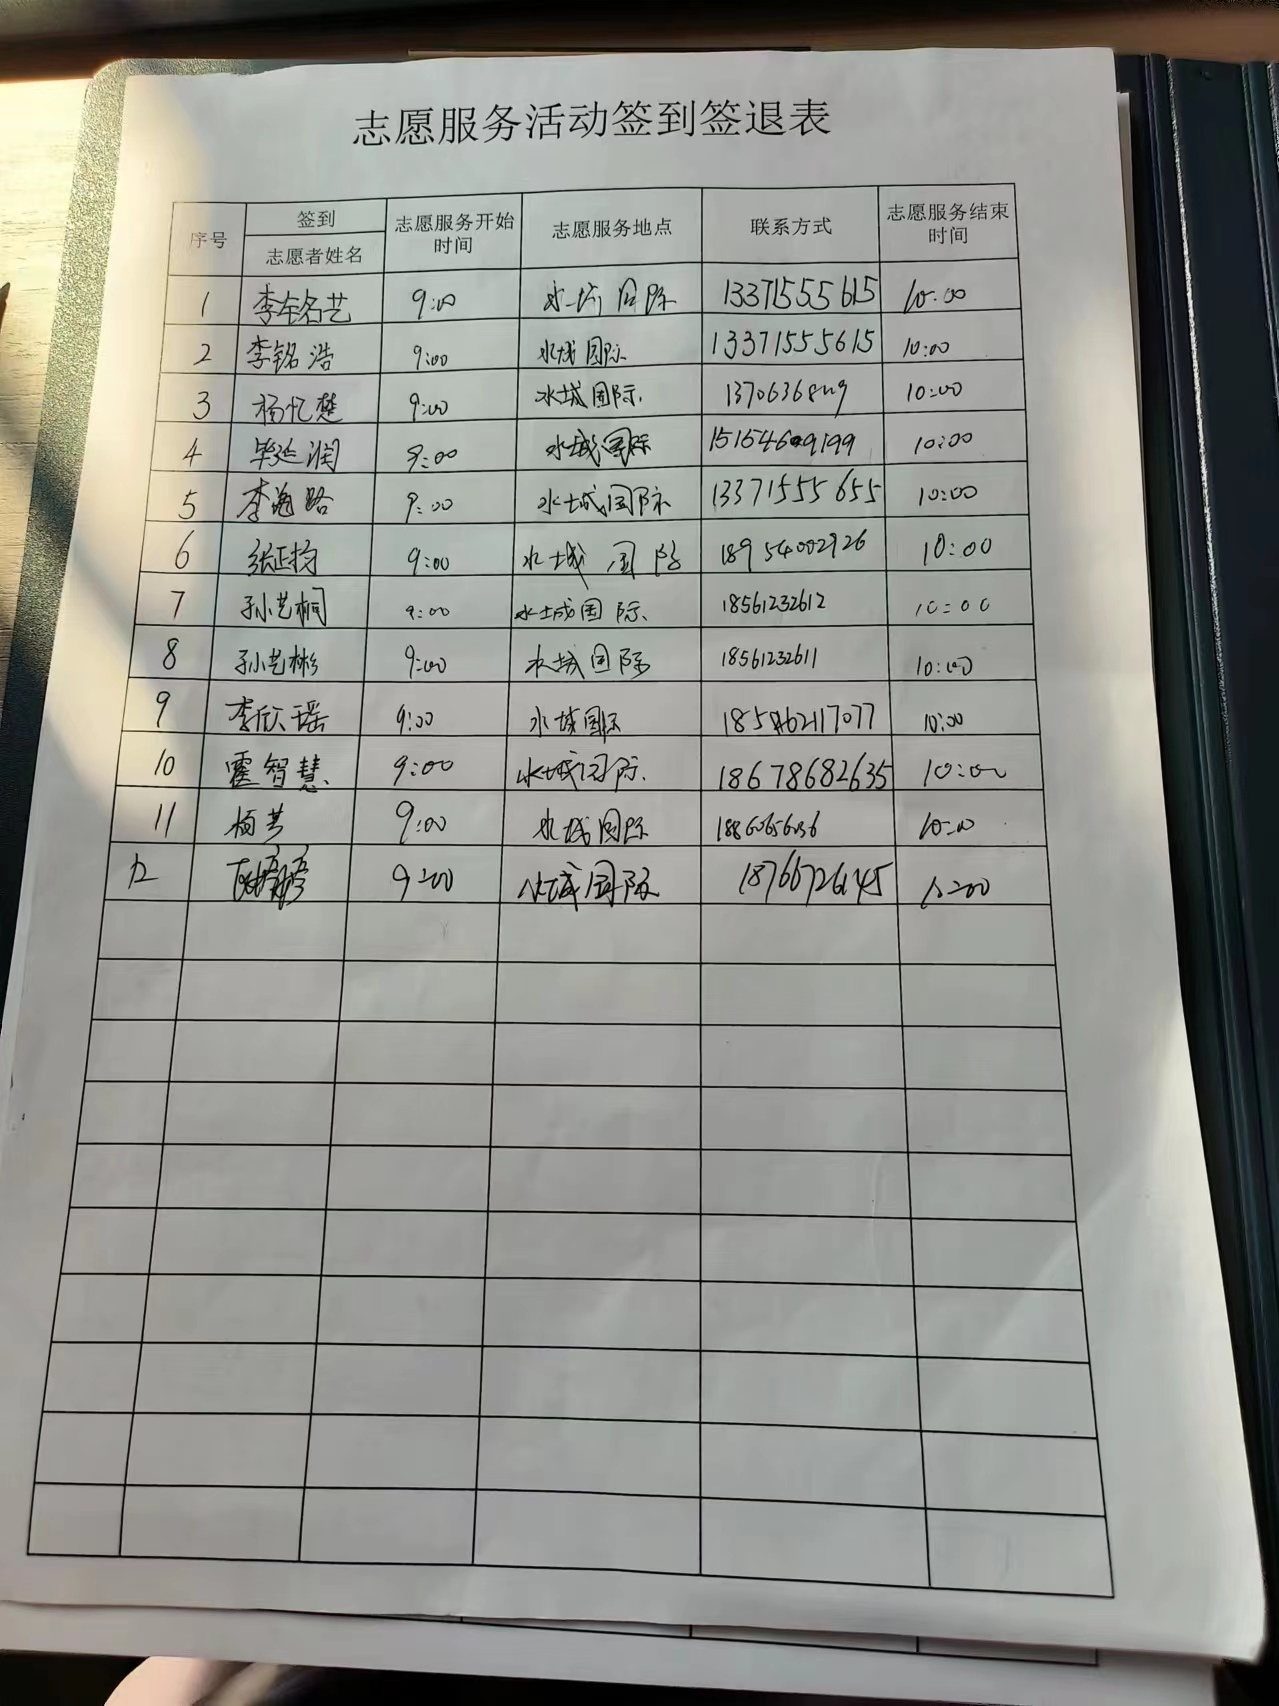 志愿服务活动签到签退表
序号 签到 志愿者姓名 志愿服务开始时间 志愿服务地点 联系方式 志愿服务结束时间
1 李全名艺 9:00 水城国际 13371555615 10:00
2 李铭浩 9:00 水城国际 13371555615 10:00
3 杨忆楚 9:00 水城国际 10:00
4 毕延润 9:00 水城国际 10:00
5 李海路 9:00 水城国际 13371555655 10:00
6 张正均 9:00 水城国际 18954002926 10:00
7 孙艺桐 9:00 水城国际 18561232612 10:00
8 孙艺彬 9:00 水城国际 18561232611 10:00
9 李欣瑶 9:00 水城国际 10:00
10 霍智慧 9:00 水城国际 18678682635 10:00
11 杨芸 9:00 水城国际 10:00
12 9:00 水城国际 18766726145 10:00